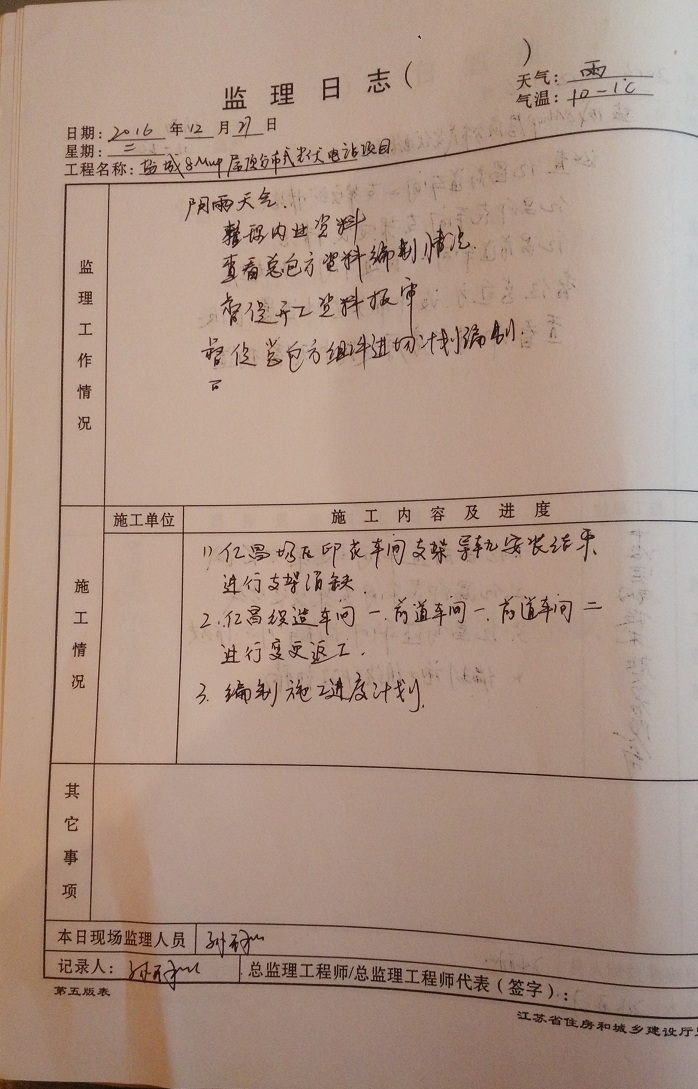 监理日志（ ）
天气：雨
气温：10-1℃
日期：2016年12月27日
星期：二
工程名称：盐城8Mwp屋顶分布式光伏电站项目
监理工作情况
阴雨天气.
整理内业资料
查看总包方资料编制情况.
督促开工资料报审
督促总包方组件进场计划编制.
施工单位 施工内容及进度
施工情况
1) 仁昌 印花车间支架导轨安装结束
进行支架消缺.
2. 仁昌织造车间一.前道车间一.前道车间二
进行变更返工.
3. 编制施工进度计划.
其它事项
本日现场监理人员 孙
记录人：孙 总监理工程师/总监理工程师代表（签字）：
第五版表
江苏省住房和城乡建设厅